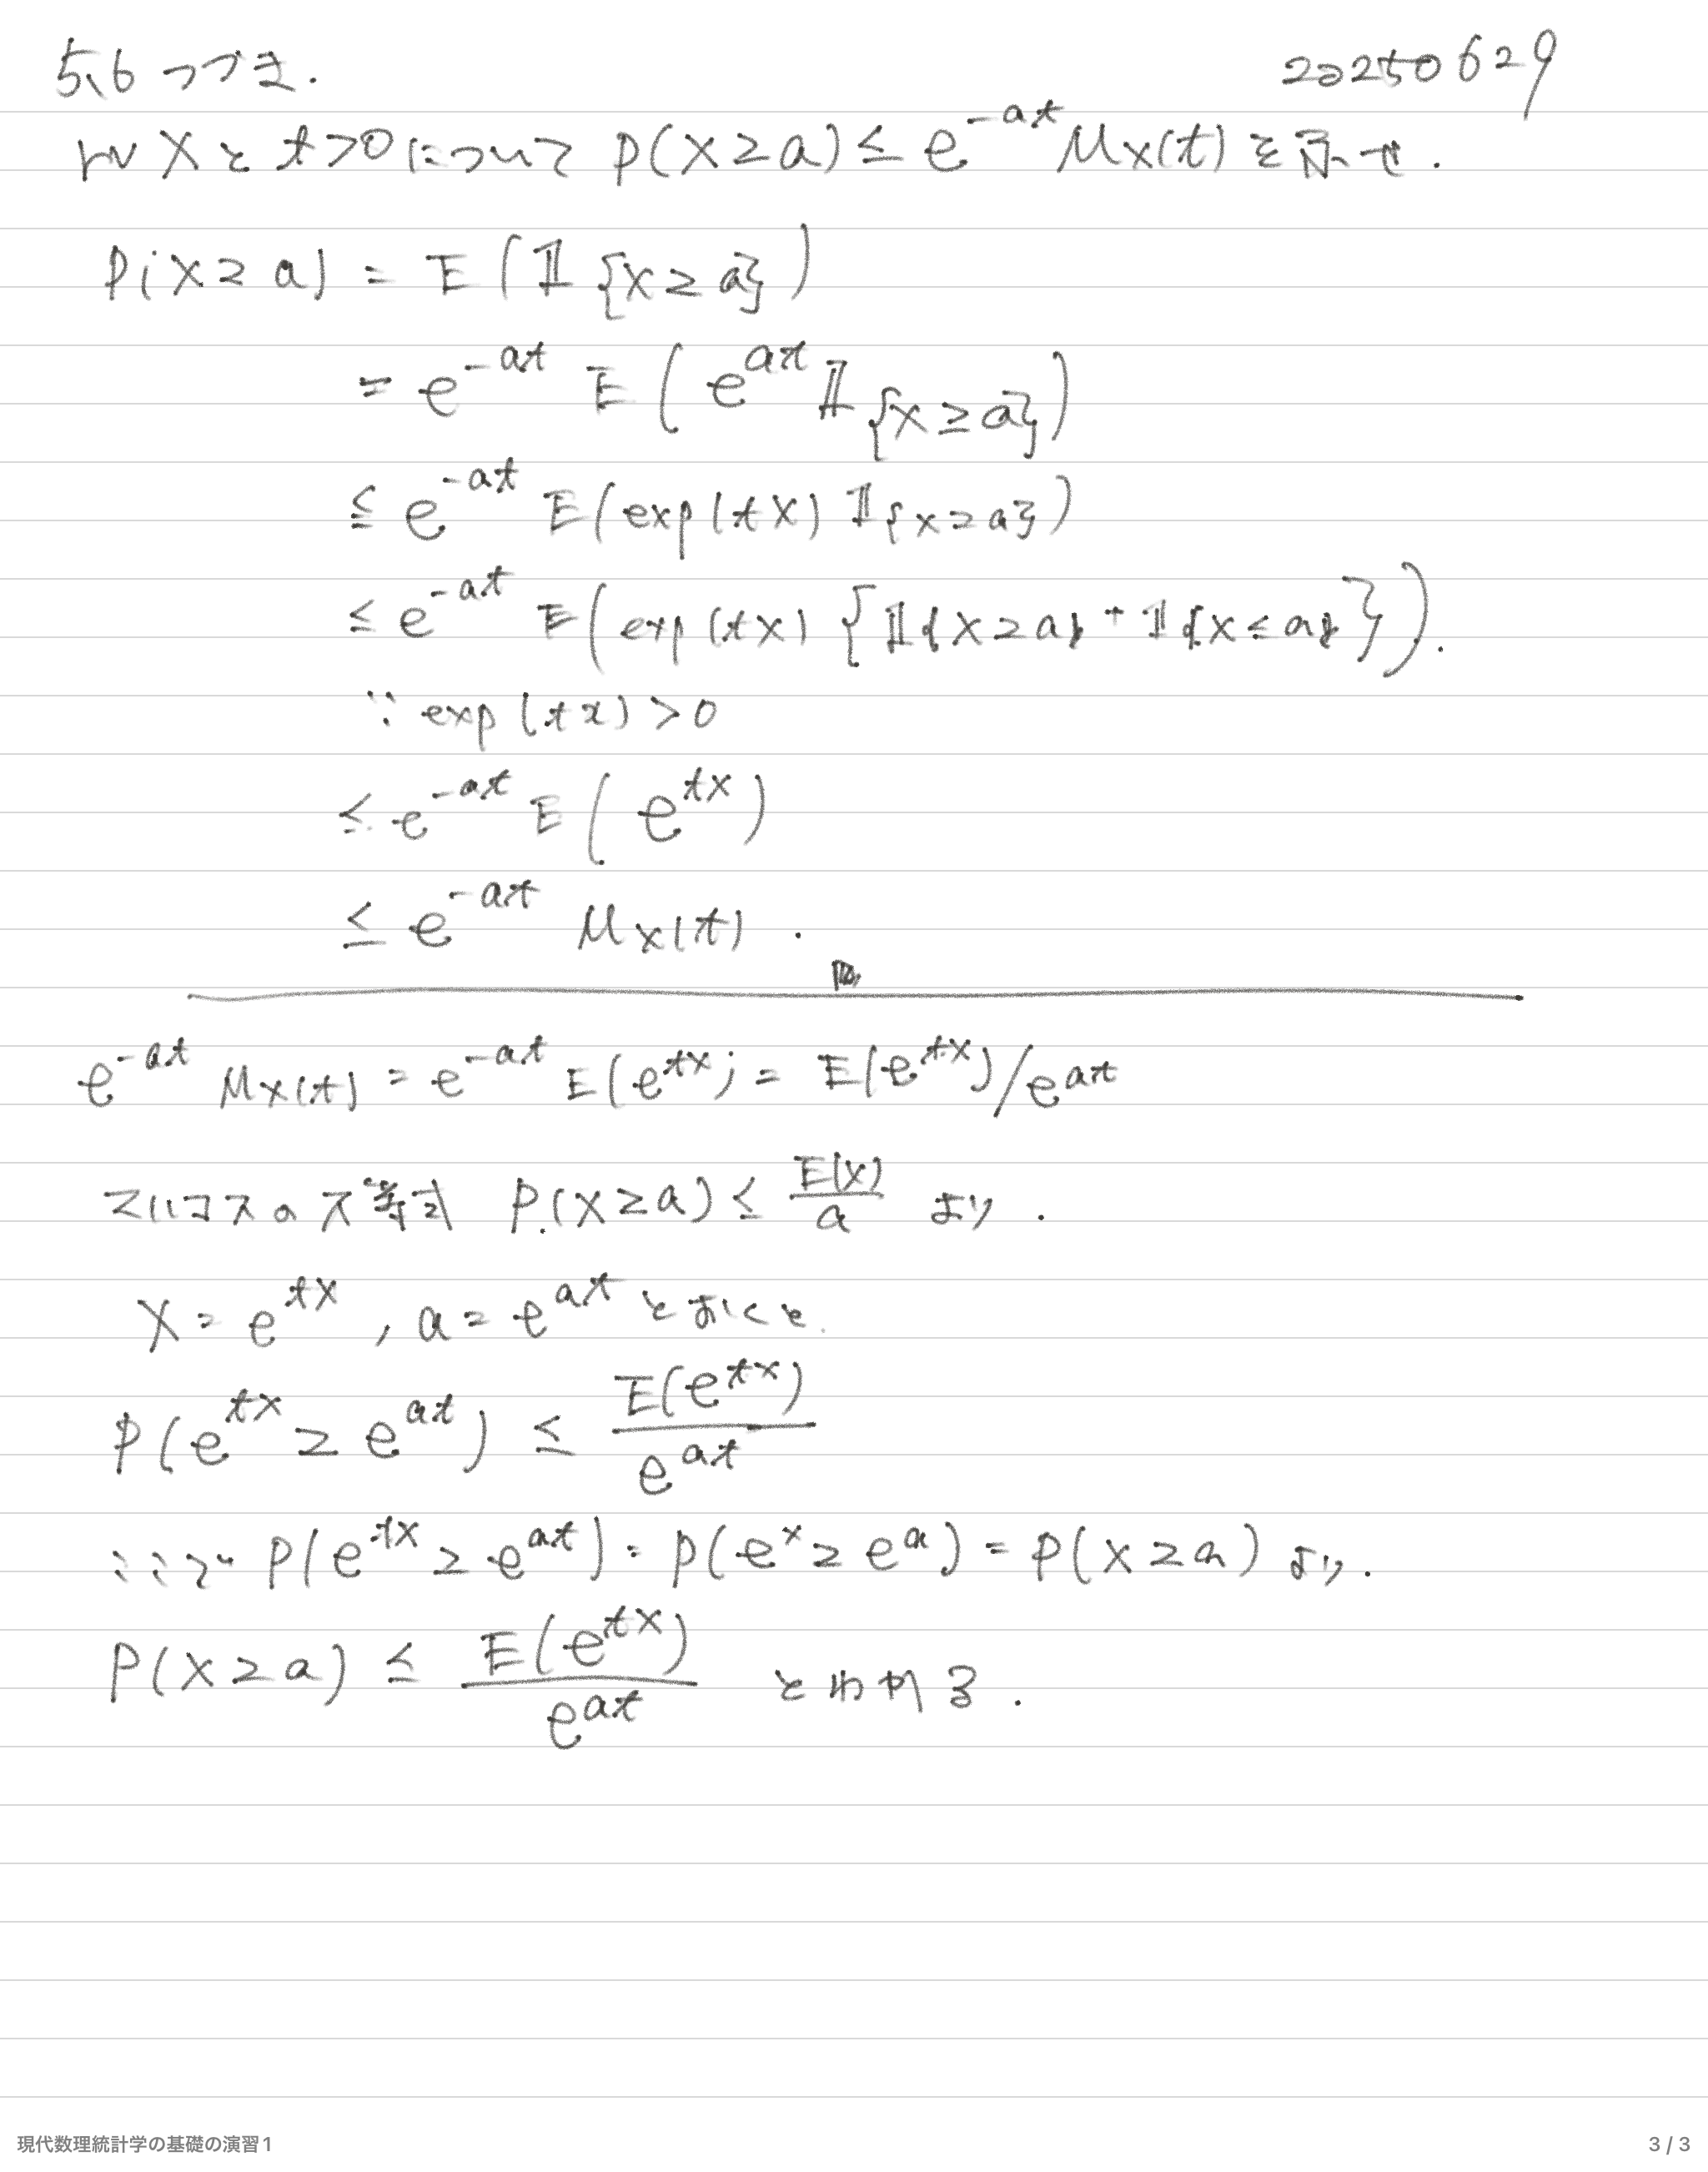 5.6 つづき. 20250629
rv X と t>0 について P(X≥a) ≤ e^{-at} M_X(t) を示せ.
P(X≥a) = E(𝟙{X≥a})
= e^{-at} E(e^{at} 𝟙{X≥a})
≦ e^{-at} E(exp(tX) 𝟙{X≥a})
≤ e^{-at} E(exp(tX) {𝟙{X≥a} + 𝟙{X≤a}}).
∵ exp(tx) > 0
≤ e^{-at} E(e^{tX})
≤ e^{-at} M_X(t).
e^{-at} M_X(t) = e^{-at} E(e^{tX}) = E(e^{tX})/e^{at}
マルコフの不等式 P(X≥a) ≤ E(X)/a より.
X = e^{tX}, a = e^{at} とおくと.
P(e^{tX} ≥ e^{at}) ≤ E(e^{tX})/e^{at}
ここで P(e^{tX} ≥ e^{at}) = P(e^X ≥ e^a) = P(X≥a) より.
P(X≥a) ≤ E(e^{tX})/e^{at} とわかる.
現代数理統計学の基礎の演習1 3 / 3